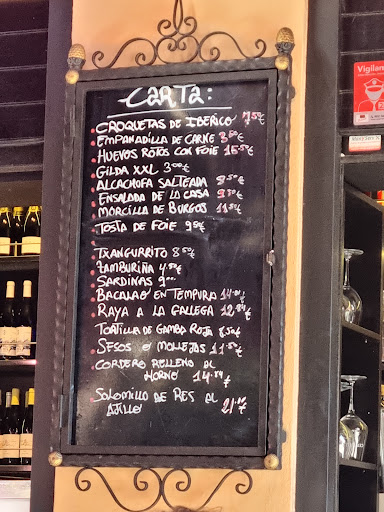 CARTA:
CROQUETAS DE IBERICO 7,50€
EMPANADILLA DE CARNE 3,50€
HUEVOS ROTOS CON FOIE 15,50€
GILDA XXL 3,00€
ALCACHOFA SALTEADA 8,50€
ENSALADA DE LA CASA 9,50€
MORCILLA DE BURGOS 11,50€
TOSTA DE FOIE 9,50€
TXANGURRITO 8,50€
ZAMBURIÑA 4,50€
SARDINAS 9,00
BACALAO EN TEMPURA 14,00€
RAYA A LA GALLEGA 12,84€
TORTILLA DE GAMBA ROJA 8,50€
SESOS O MOLLEJAS 11,50€
CORDERO RELLENO AL
HORNO 14,84€
SOLOMILLO DE RES AL
AJILLO 21,00€
Vigilan